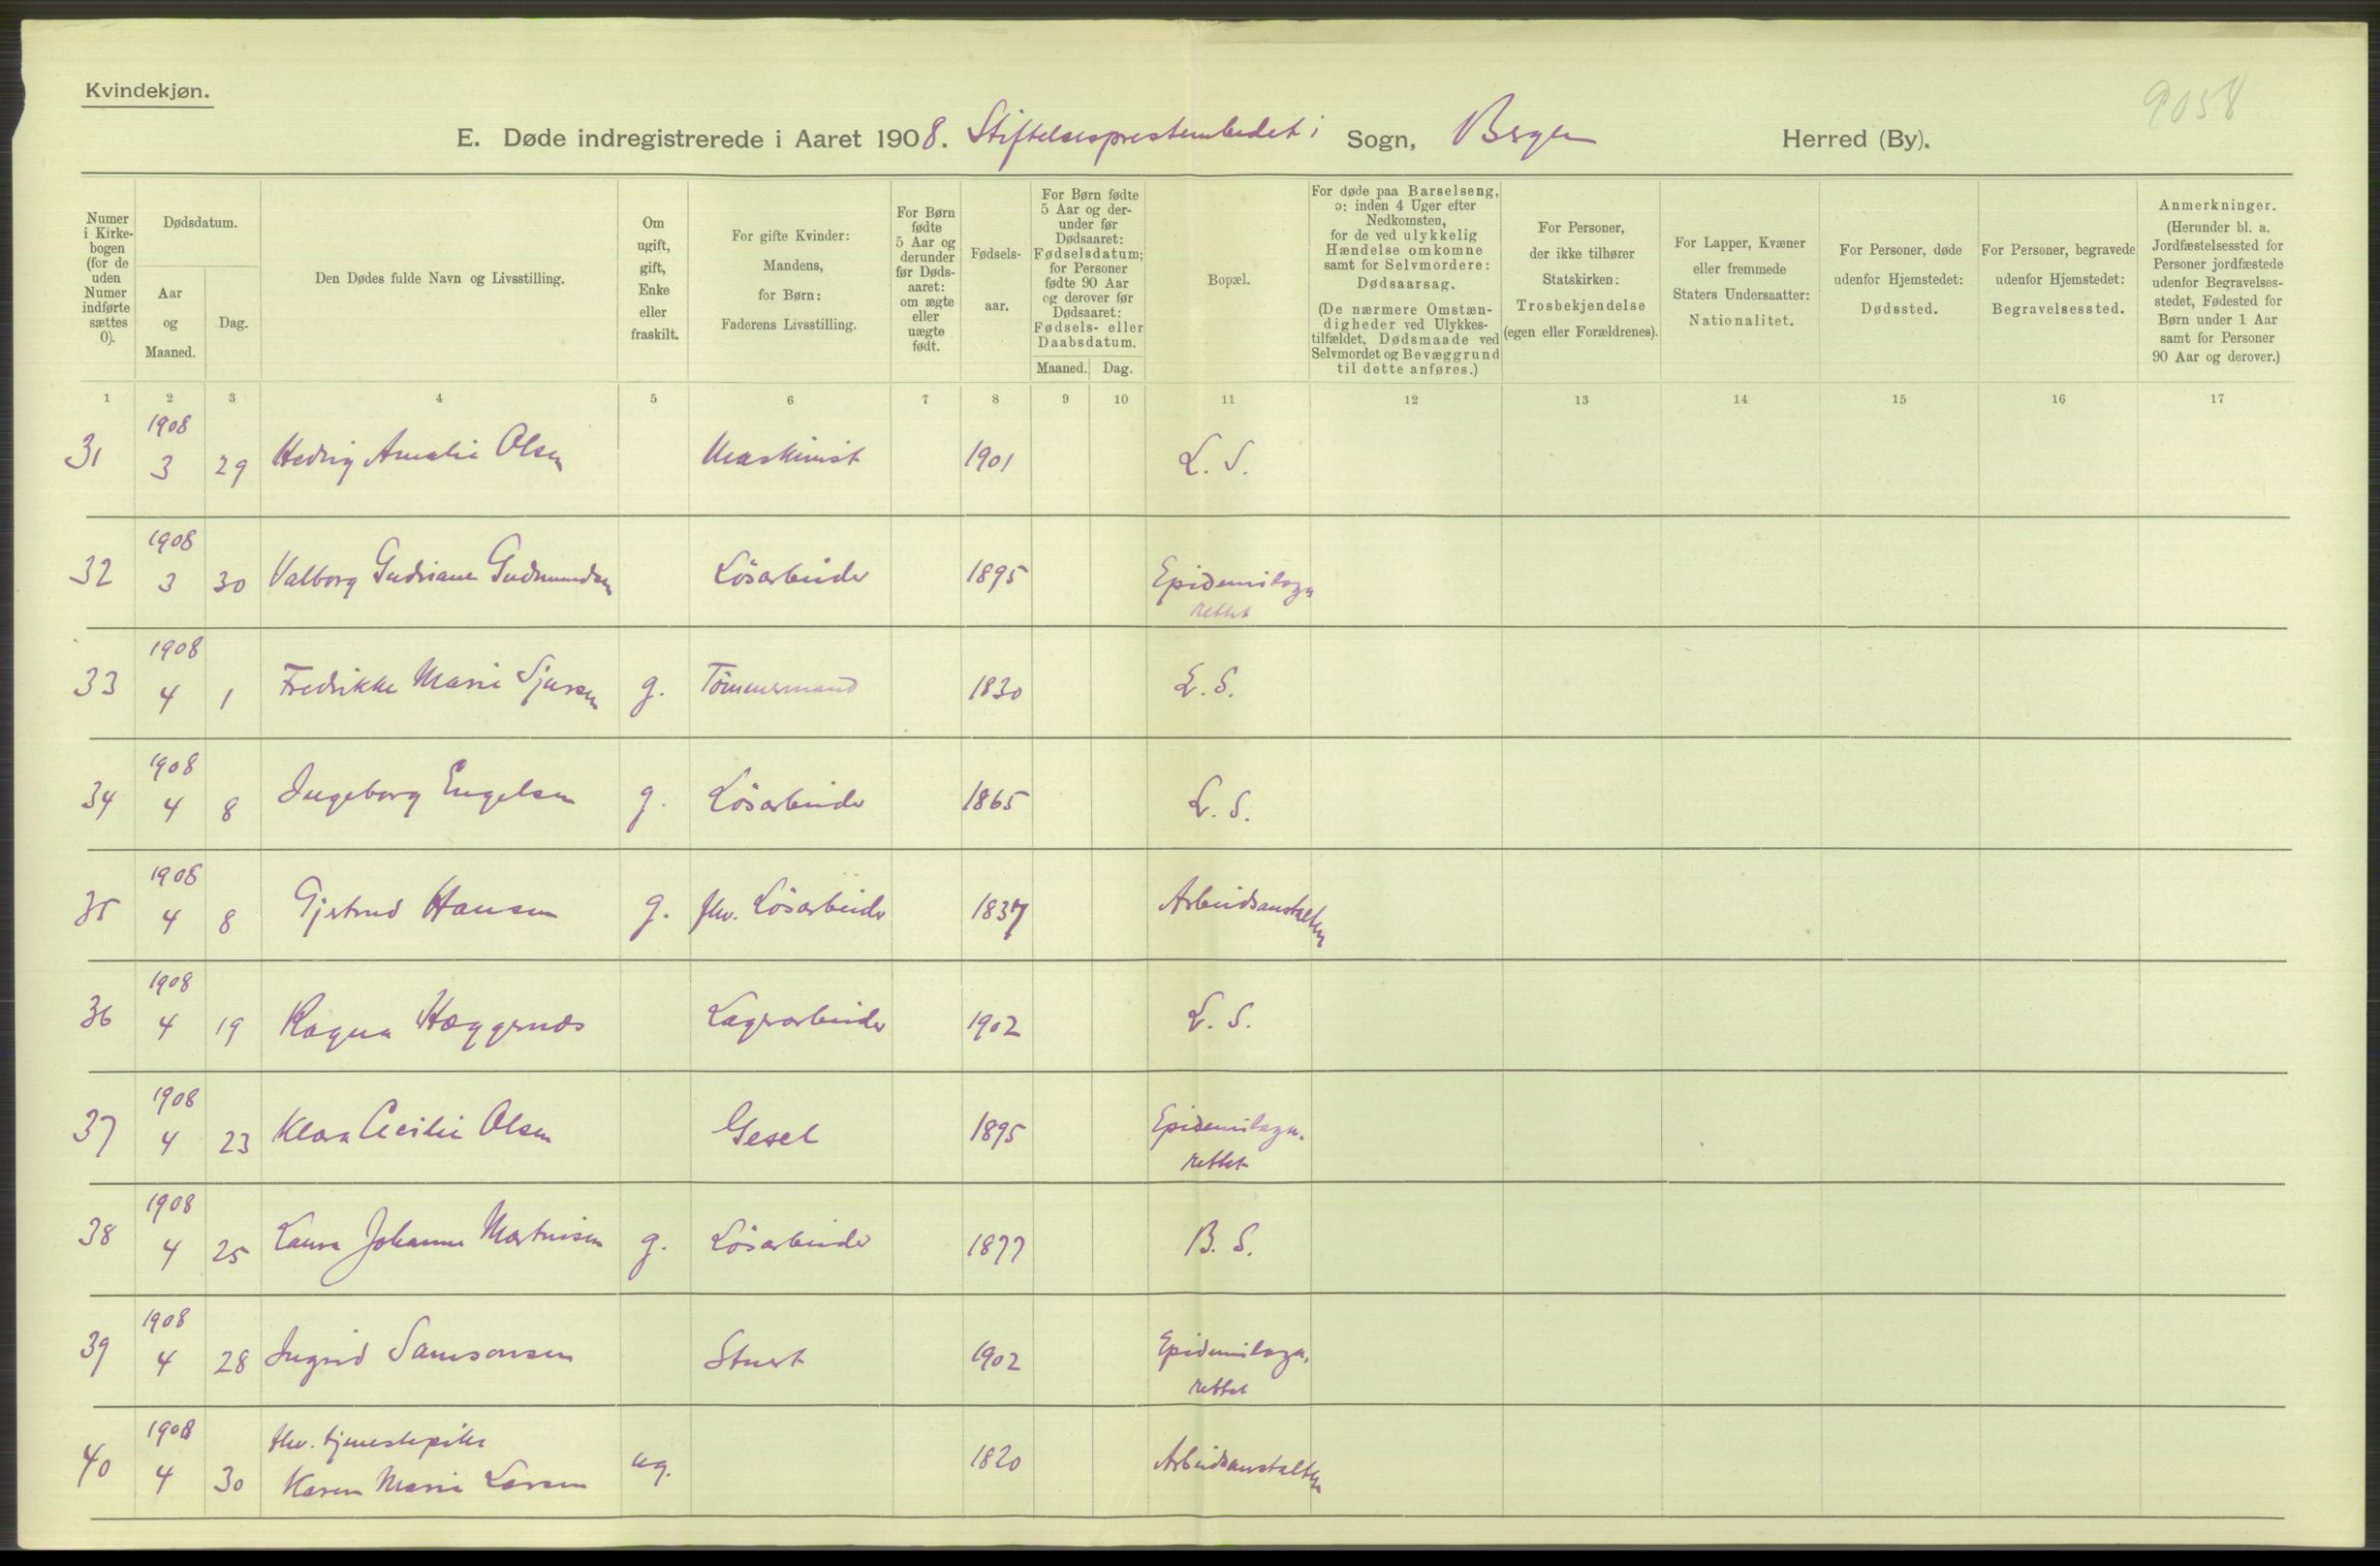 Kvindekjøn.
9058
E. Døde indregistrerede i Aaret 1908. Stiftelsesprestembedet i Sogn, Bergen Herred (By).
Numer i Kirkebogen (for de uden Numer indførte sættes 0).
Dødsdatum.
Aar og Maaned.
Dag.
Den Dødes fulde Navn og Livsstilling.
Om ugift, gift, Enke eller fraskilt.
For gifte Kvinder: Mandens, for Børn: Faderens Livsstilling.
For Børn fødte 5 Aar og derunder før Dødsaaret: om ægte eller uægte født.
Fødselsaar.
For Børn fødte 5 Aar og derunder før Dødsaaret: Fødselsdatum; for Personer fødte 90 Aar og derover før Dødsaaret: Fødsels- eller Daabsdatum.
Maaned. Dag.
Bopæl.
For døde paa Barselseng, ɔ: inden 4 Uger efter Nedkomsten, for de ved ulykkelig Hændelse omkomne samt for Selvmordere: Dødsaarsag.
(De nærmere Omstændigheder ved Ulykkestilfældet, Dødsmaade ved Selvmordet og Bevæggrund til dette anføres.)
For Personer, der ikke tilhører Statskirken: Trosbekjendelse (egen eller Forældrenes).
For Lapper, Kvæner eller fremmede Staters Undersaatter: Nationalitet.
For Personer, døde udenfor Hjemstedet: Dødssted.
For Personer, begravede udenfor Hjemstedet: Begravelsessted.
Anmerkninger. (Herunder bl. a. Jordfæstelsessted for Personer jordfæstede udenfor Begravelsesstedet, Fødested for Børn under 1 Aar samt for Personer 90 Aar og derover.)
1 2 3 4 5 6 7 8 9 10 11 12 13 14 15 16 17
1908
31 3 29 Hedvig Amalie Olsen Maskinist 1901 L. S.
1908
32 3 30 Valborg Gudriane Gudmundsen Løsarbeider 1895 Epidemilaza
rettet
1908
33 4 1 Fredrikke Marie Sjursen g. Tömmermand 1830 L. S.
1908
34 4 8 Ingeborg Engelsen g. Løsarbeider 1865 L. S.
1908
35 4 8 Gjertrud Hansen g. fhv. Løsarbeider 1837 Arbeidsanstalten
1908
36 4 19 Ragna Hæggernæs Lagerarbeider 1902 L. S.
1908
37 4 23 Klara Cecilie Olsen Gesel 1895 Epidemilaza-
rettet
1908
38 4 25 Laura Johanne Martinsen g. Løsarbeider 1877 B. S.
1908
39 4 28 Ingrid Samsonsen Stuert 1902 Epidemilaza-
rettet
1908 fhv. tjenestepike
40 4 30 Karen Marie Larsen ug. 1820 Arbeidsanstalten